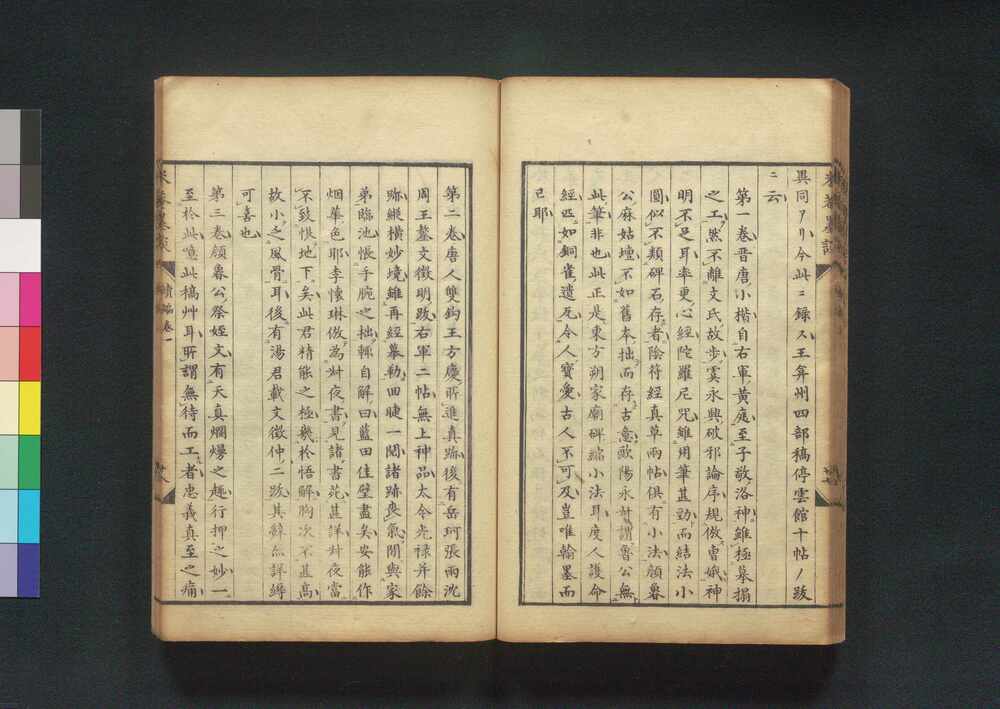 異同アリ今此ニ録ス王弇州四部稿停雲館十帖ノ跋
ニ云
第一卷晋唐小楷自右軍黄庭至子敬洛神雖極摹搨
之工然不離文氏故歩虞永興破邪論序規倣曹娥神
明不足耳率更心經陀羅尼咒雖用筆甚勁而結法小
圓似不類碑石存者陰符經真草兩帖俱有小法顔魯
公麻姑壇不如舊本拙而存古意歐陽永叔謂魯公無
此筆非也此正是東方朔家廟碑縮小法耳度人護命
經匹如銅雀遺瓦令人寳愛古人不可及豈唯翰墨而
已耶
第二卷唐人雙鈎王方慶所進真跡後有岳珂張雨沈
周王鏊文徴明跋右軍二帖無上神品太令光禄并餘
跡縱横妙境雖再經摹勒四睫一閲諸跡喪氣閒與家
弟臨池悵手腕之拙輙自解曰藍田佳璧盡矣安能作
烟華色耶李懐琳倣為叔夜書見諸書苑甚詳叔夜當
不致恨地下矣此君精能之極幾於悟解胸次不甚高
故小乏風骨耳後有湯君載文徴仲二跋其辭亦詳縟
可喜也
第三卷顔魯公祭姪文有天真爛熳之趣行押之妙一
至於此噫此稿艸耳所謂無待而工者忠義真至之痛
續編卷一